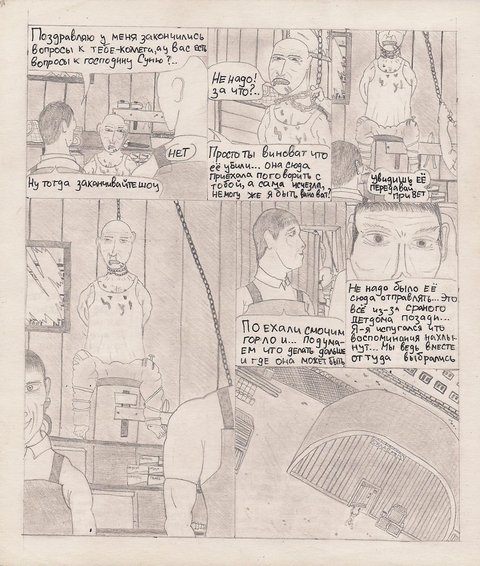 Поздравляю у меня закончились
вопросы к тебе-коллега, а у вас есть
вопросы к господину Суню?..
НЕТ
Ну тогда заканчивайте шоу
Не надо!
за что?..
Просто ты виноват что
её убили... она сюда
приехала поговорить с
тобой, а сама исчезла,
не могу же я быть виноват!
увидишь её
передавай
привет
Поехали смочим
горло и... подума-
ем что делать дальше
и где она может быть
Не надо было её
сюда отправлять... это
всё из-за сраного
детдома позади...
Я-я испугался что
воспоминания нахлы-
нут... Мы ведь вместе
оттуда выбрались